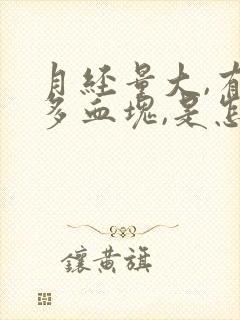 月经量大,有
多血块,是怎
鑲黄旗